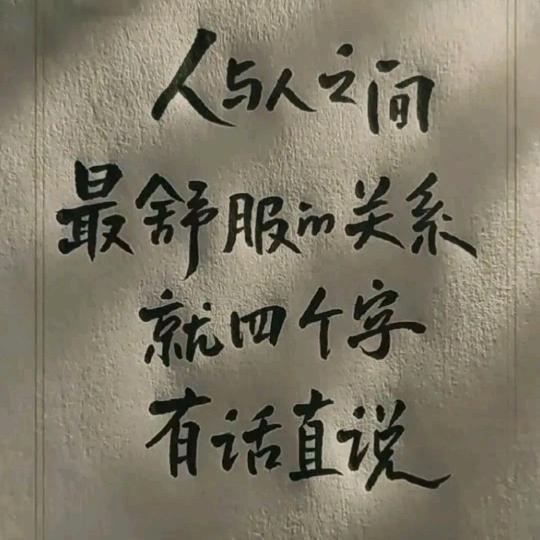 人与人之间
最舒服的关系
就四个字
有话直说